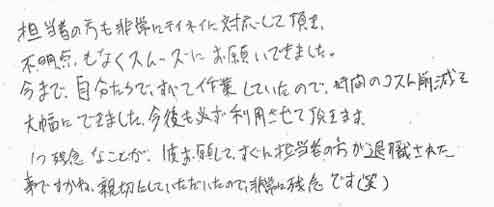 担当者の方も非常にテイネイに対応して頂き、
不明点もなくスムーズにお願いできました。
今まで、自分たちで、すべて作業していたので、時間のコスト削減を
大幅にできました。今後も必ず利用させて頂きます。
1つ残念なことが、1度お願して、すぐに担当者の方が退職された
事ですかね。親切にしていただいたので、非常に残念です(笑)